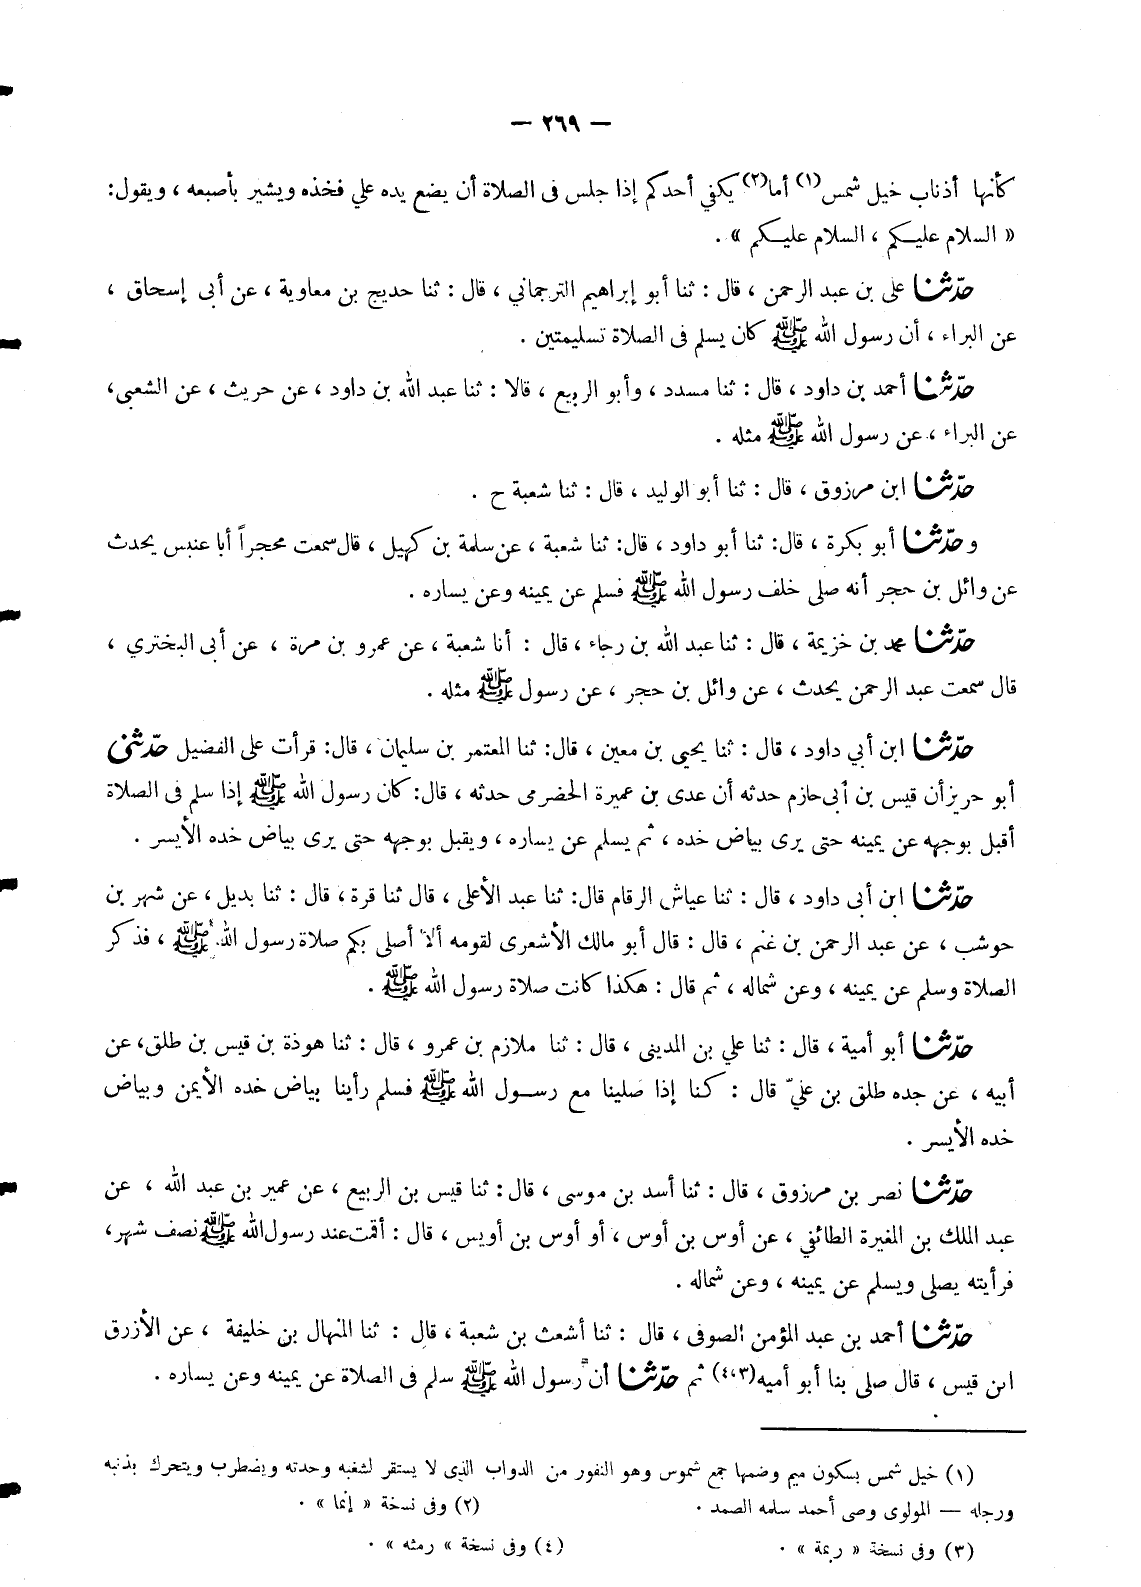 — ٢٦٩ —
كأنها أذناب خيل شمس(١) أما(٢) يكفي أحدكم إذا جلس فى الصلاة أن يضع يده علي فخذه ويشير بأصبعه ، ويقول:
« السلام عليـكم ، السلام عليـكم » .
حدّثنا على بن عبد الرحمن ، قال : ثنا أبو إبراهيم الترجماني ، قال : ثنا حديج بن معاوية ، عن أبى إسحاق ،
عن البراء ، أن رسول الله ﷺ كان يسلم فى الصلاة تسليمتين .
حدّثنا أحمد بن داود ، قال : ثنا مسدد ، وأبو الربيع ، قالا : ثنا عبد الله بن داود ، عن حريث ، عن الشعبي،
عن البراء ، عن رسول الله ﷺ مثله .
حدّثنا ابن مرزوق ، قال : ثنا أبو الوليد ، قال : ثنا شعبة ح .
وحدّثنا أبو بكرة ، قال: ثنا أبو داود ، قال: ثنا شعبة ، عن سلمة بن كهيل ، قال سمعت محجراً أبا عنبس يحدث
عن وائل بن حجر أنه صلى خلف رسول الله ﷺ فسلم عن يمينه وعن يساره .
حدّثنا محمد بن خزيمة ، قال : ثنا عبد الله بن رجاء ، قال : أنا شعبة ، عن عمرو بن مرة ، عن أبى البختري ،
قال سمعت عبد الرحمن يحدث ، عن وائل بن حجر ، عن رسول ﷺ مثله .
حدّثنا ابن أبي داود ، قال : ثنا يحيى بن معين ، قال: ثنا المعتمر بن سليمان ، قال: قرأت على الفضيل حدّثنى
أبو حريز أن قيس بن أبى حازم حدثه أن عدى بن عميرة الحضرمى حدثه ، قال: كان رسول الله ﷺ إذا سلم فى الصلاة
أقبل بوجهه عن يمينه حتى يرى بياض خده ، ثم يسلم عن يساره ، ويقبل بوجهه حتى يرى بياض خده الأيسر .
حدّثنا ابن أبى داود ، قال : ثنا عياش الرقام قال: ثنا عبد الأعلى ، قال ثنا قرة ، قال : ثنا بديل ، عن شهر بن
حوشب ، عن عبد الرحمن بن غنم ، قال : قال أبو مالك الأشعرى لقومه ألا أصلى بكم صلاة رسول الله ﷺ ، فذكر
الصلاة وسلم عن يمينه ، وعن شماله ، ثم قال : هكذا كانت صلاة رسول الله ﷺ .
حدّثنا أبو أمية ، قال : ثنا علي بن المدينى ، قال : ثنا ملازم بن عمرو ، قال : ثنا هوذة بن قيس بن طلق، عن
أبيه ، عن جده طلق بن عليّ قال : كنا إذا صلينا مع رسـول الله ﷺ فسلم رأينا بياض خده الأيمن وبياض
خده الأيسر .
حدّثنا نصر بن مرزوق ، قال : ثنا أسد بن موسى ، قال : ثنا قيس بن الربيع ، عن عمير بن عبد الله ، عن
عبد الملك بن المغيرة الطائفي ، عن أوس بن أوس ، أو أوس بن أويس ، قال : أقمت عند رسول الله ﷺ نصف شهر،
فرأيته يصلى ويسلم عن يمينه ، وعن شماله .
حدّثنا أحمد بن عبد المؤمن الصوفى ، قال : ثنا أشعث بن شعبة ، قال : ثنا المنهال بن خليفة ، عن الأزرق
ابن قيس ، قال صلى بنا أبو أميه(٤،٣) ثم حدّثنا أن رسول الله ﷺ سلم فى الصلاة عن يمينه وعن يساره .
(١) خيل شمس بسكون ميم وضمها جمع شموس وهو النفور من الدواب الذى لا يستقر لشغبه وحدته ويضطرب ويتحرك بذنبه
ورجله — المولوى وصى أحمد سلمه الصمد . (٢) وفى نسخة « إنما » .
(٣) وفى نسخة « ريمة » . (٤) وفى نسخة » رمثه » .